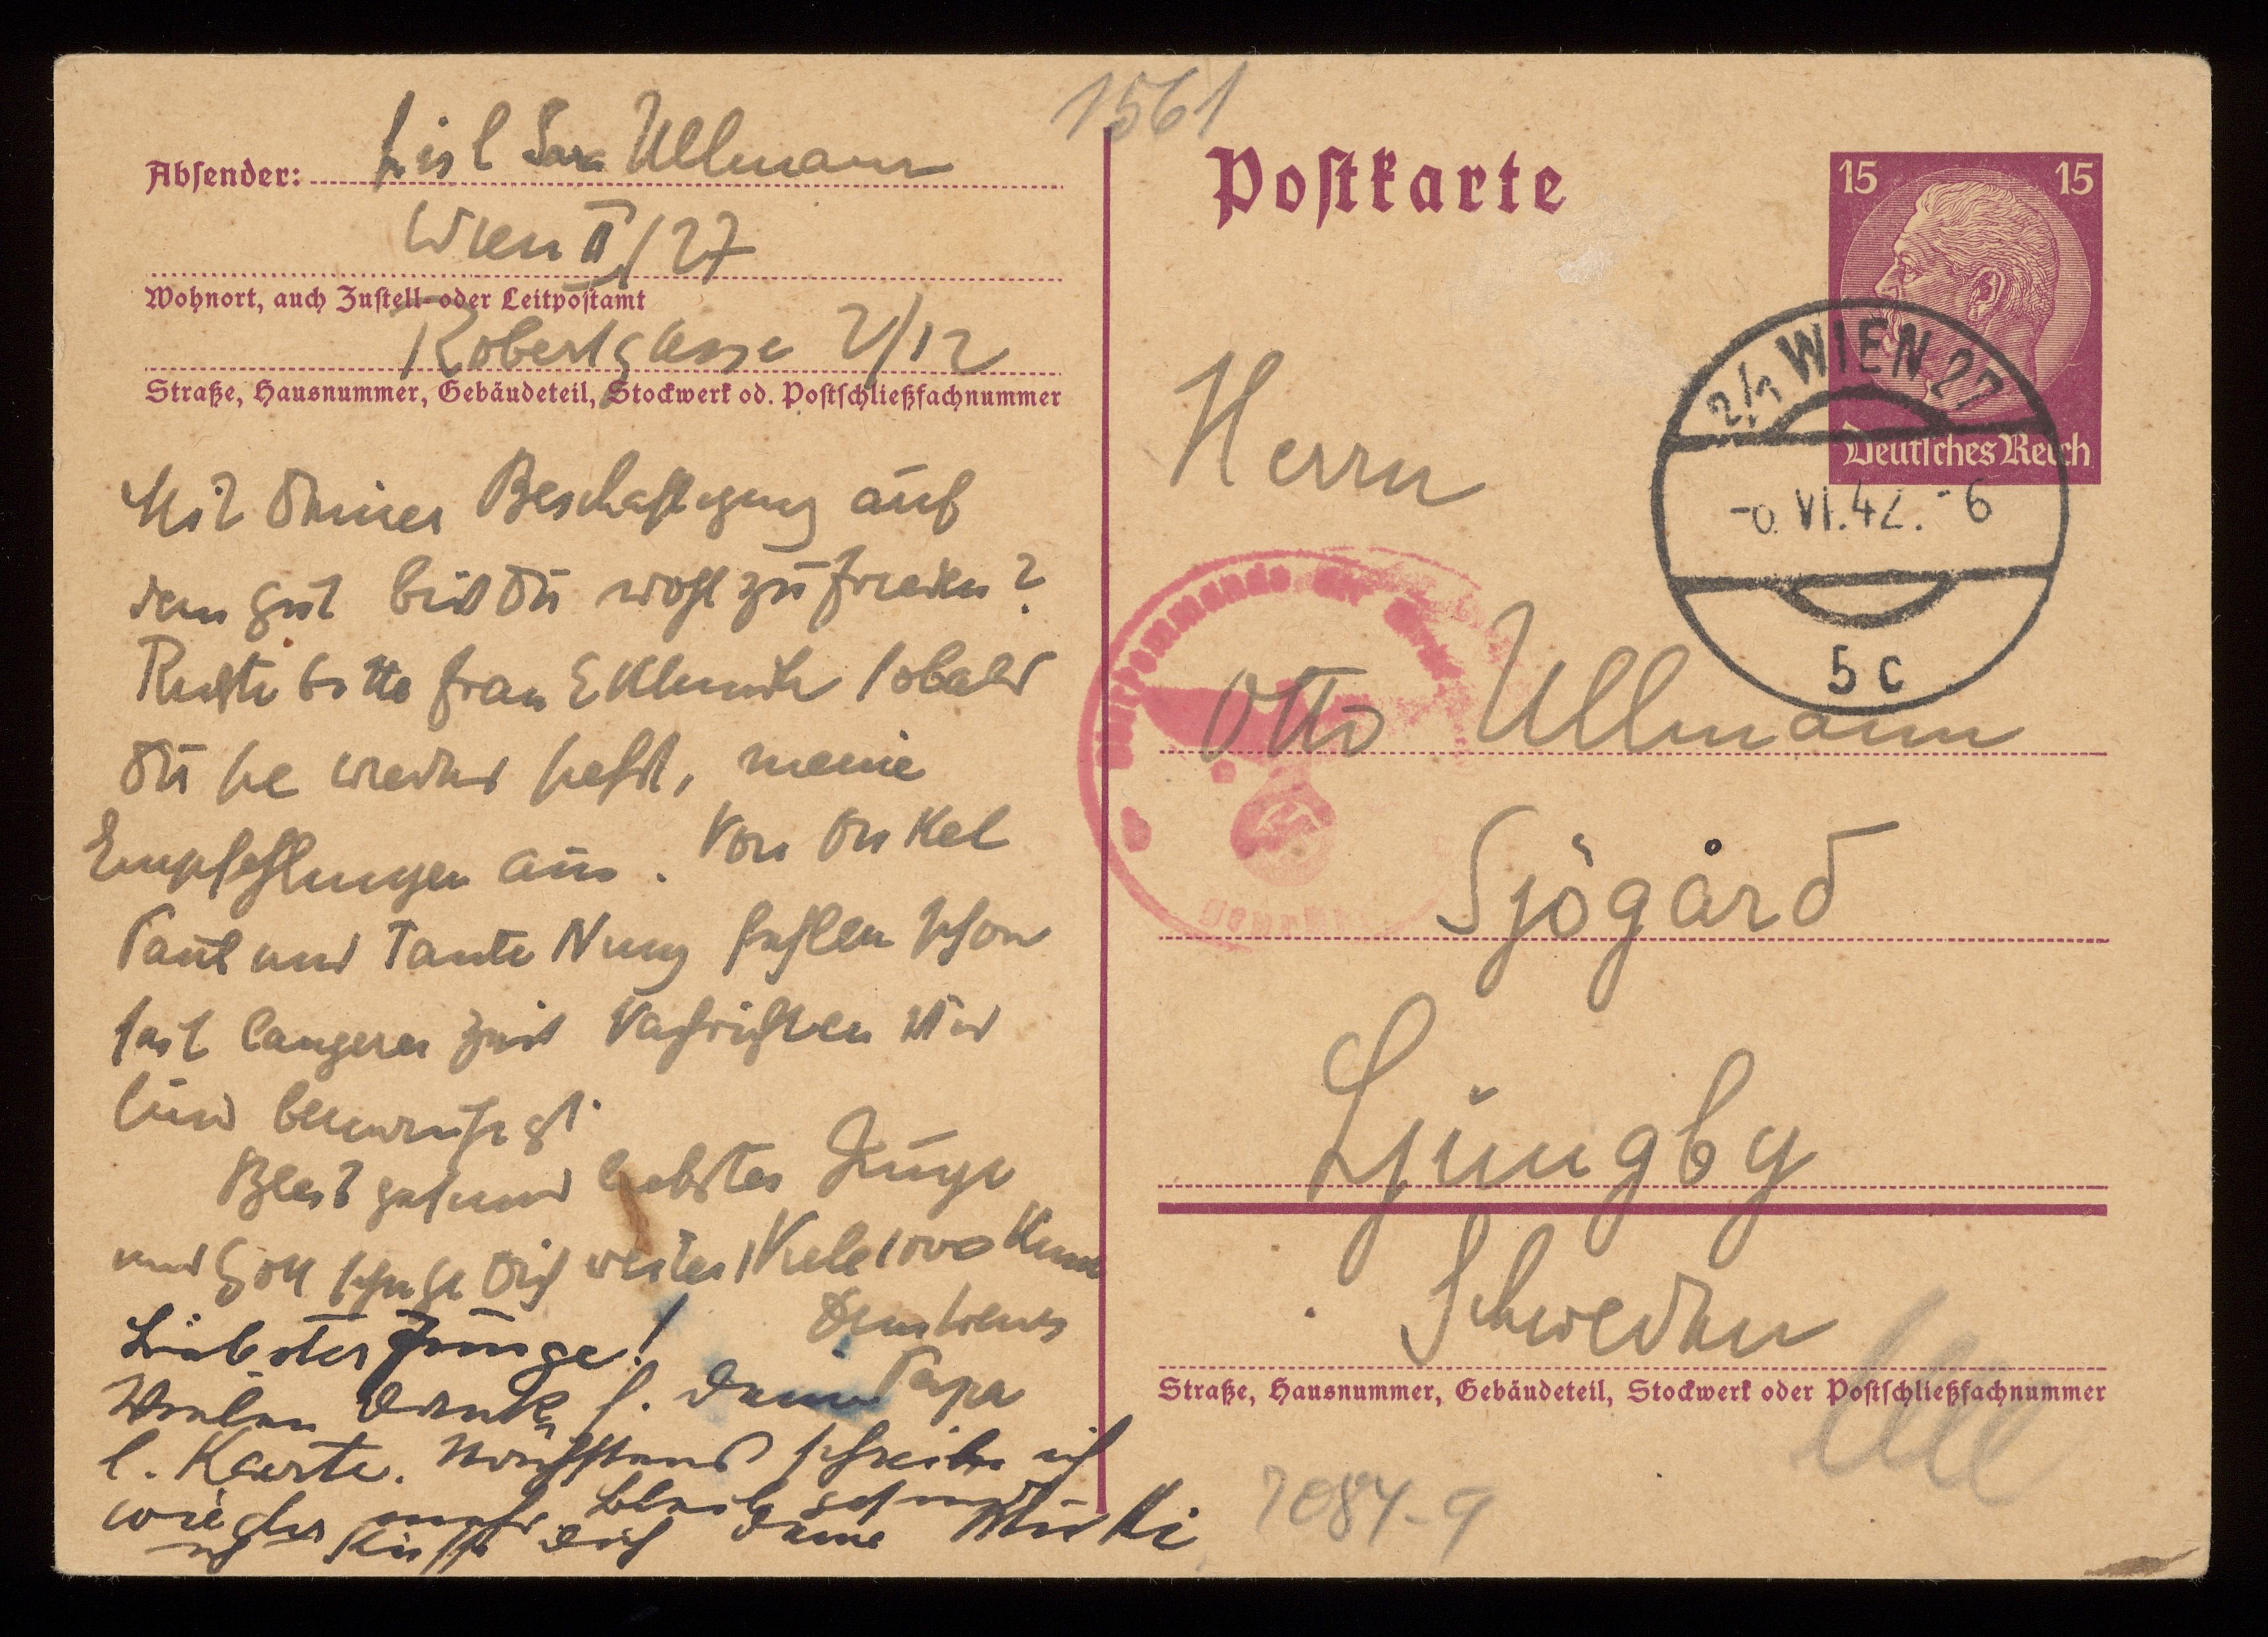 1561
Absender: Lisl Sara Ullmann
Wien II/27
Wohnort, auch Zustell- oder Leitpostamt
Robertgasse 2/12
Straße, Hausnummer, Gebäudeteil, Stockwerk od. Postschließfachnummer
Mit Deiner Beschäftigung auf
dem Gut bist Du wohl zufrieden?
Richte bitte Frau sobald
Du sie wieder siehst, meine
Empfehlungen aus. Von Onkel
Paul und Tante Nuny fehlen schon
seit längerer Zeit Nachrichten. Wir
sind beunruhigt.
Bleib gesund liebster Junge
und Gott schütze Dich weiter. Viele 1000 Küsse
Dein treuer
Papa
Liebster Junge!
Vielen Dank f. Deine
l. Karte. Nächstens schreibe ich
wieder mehr. Bleib gesund
es küsst Dich Deine Mutti
Postkarte
15 15
Deutsches Reich
2/1 WIEN 27
VI.42.-6
5c
Herrn
Otto Ullmann
Sjögård
Ljungby
Schweden
Straße, Hausnummer, Gebäudeteil, Stockwerk oder Postschließfachnummer
7084-9